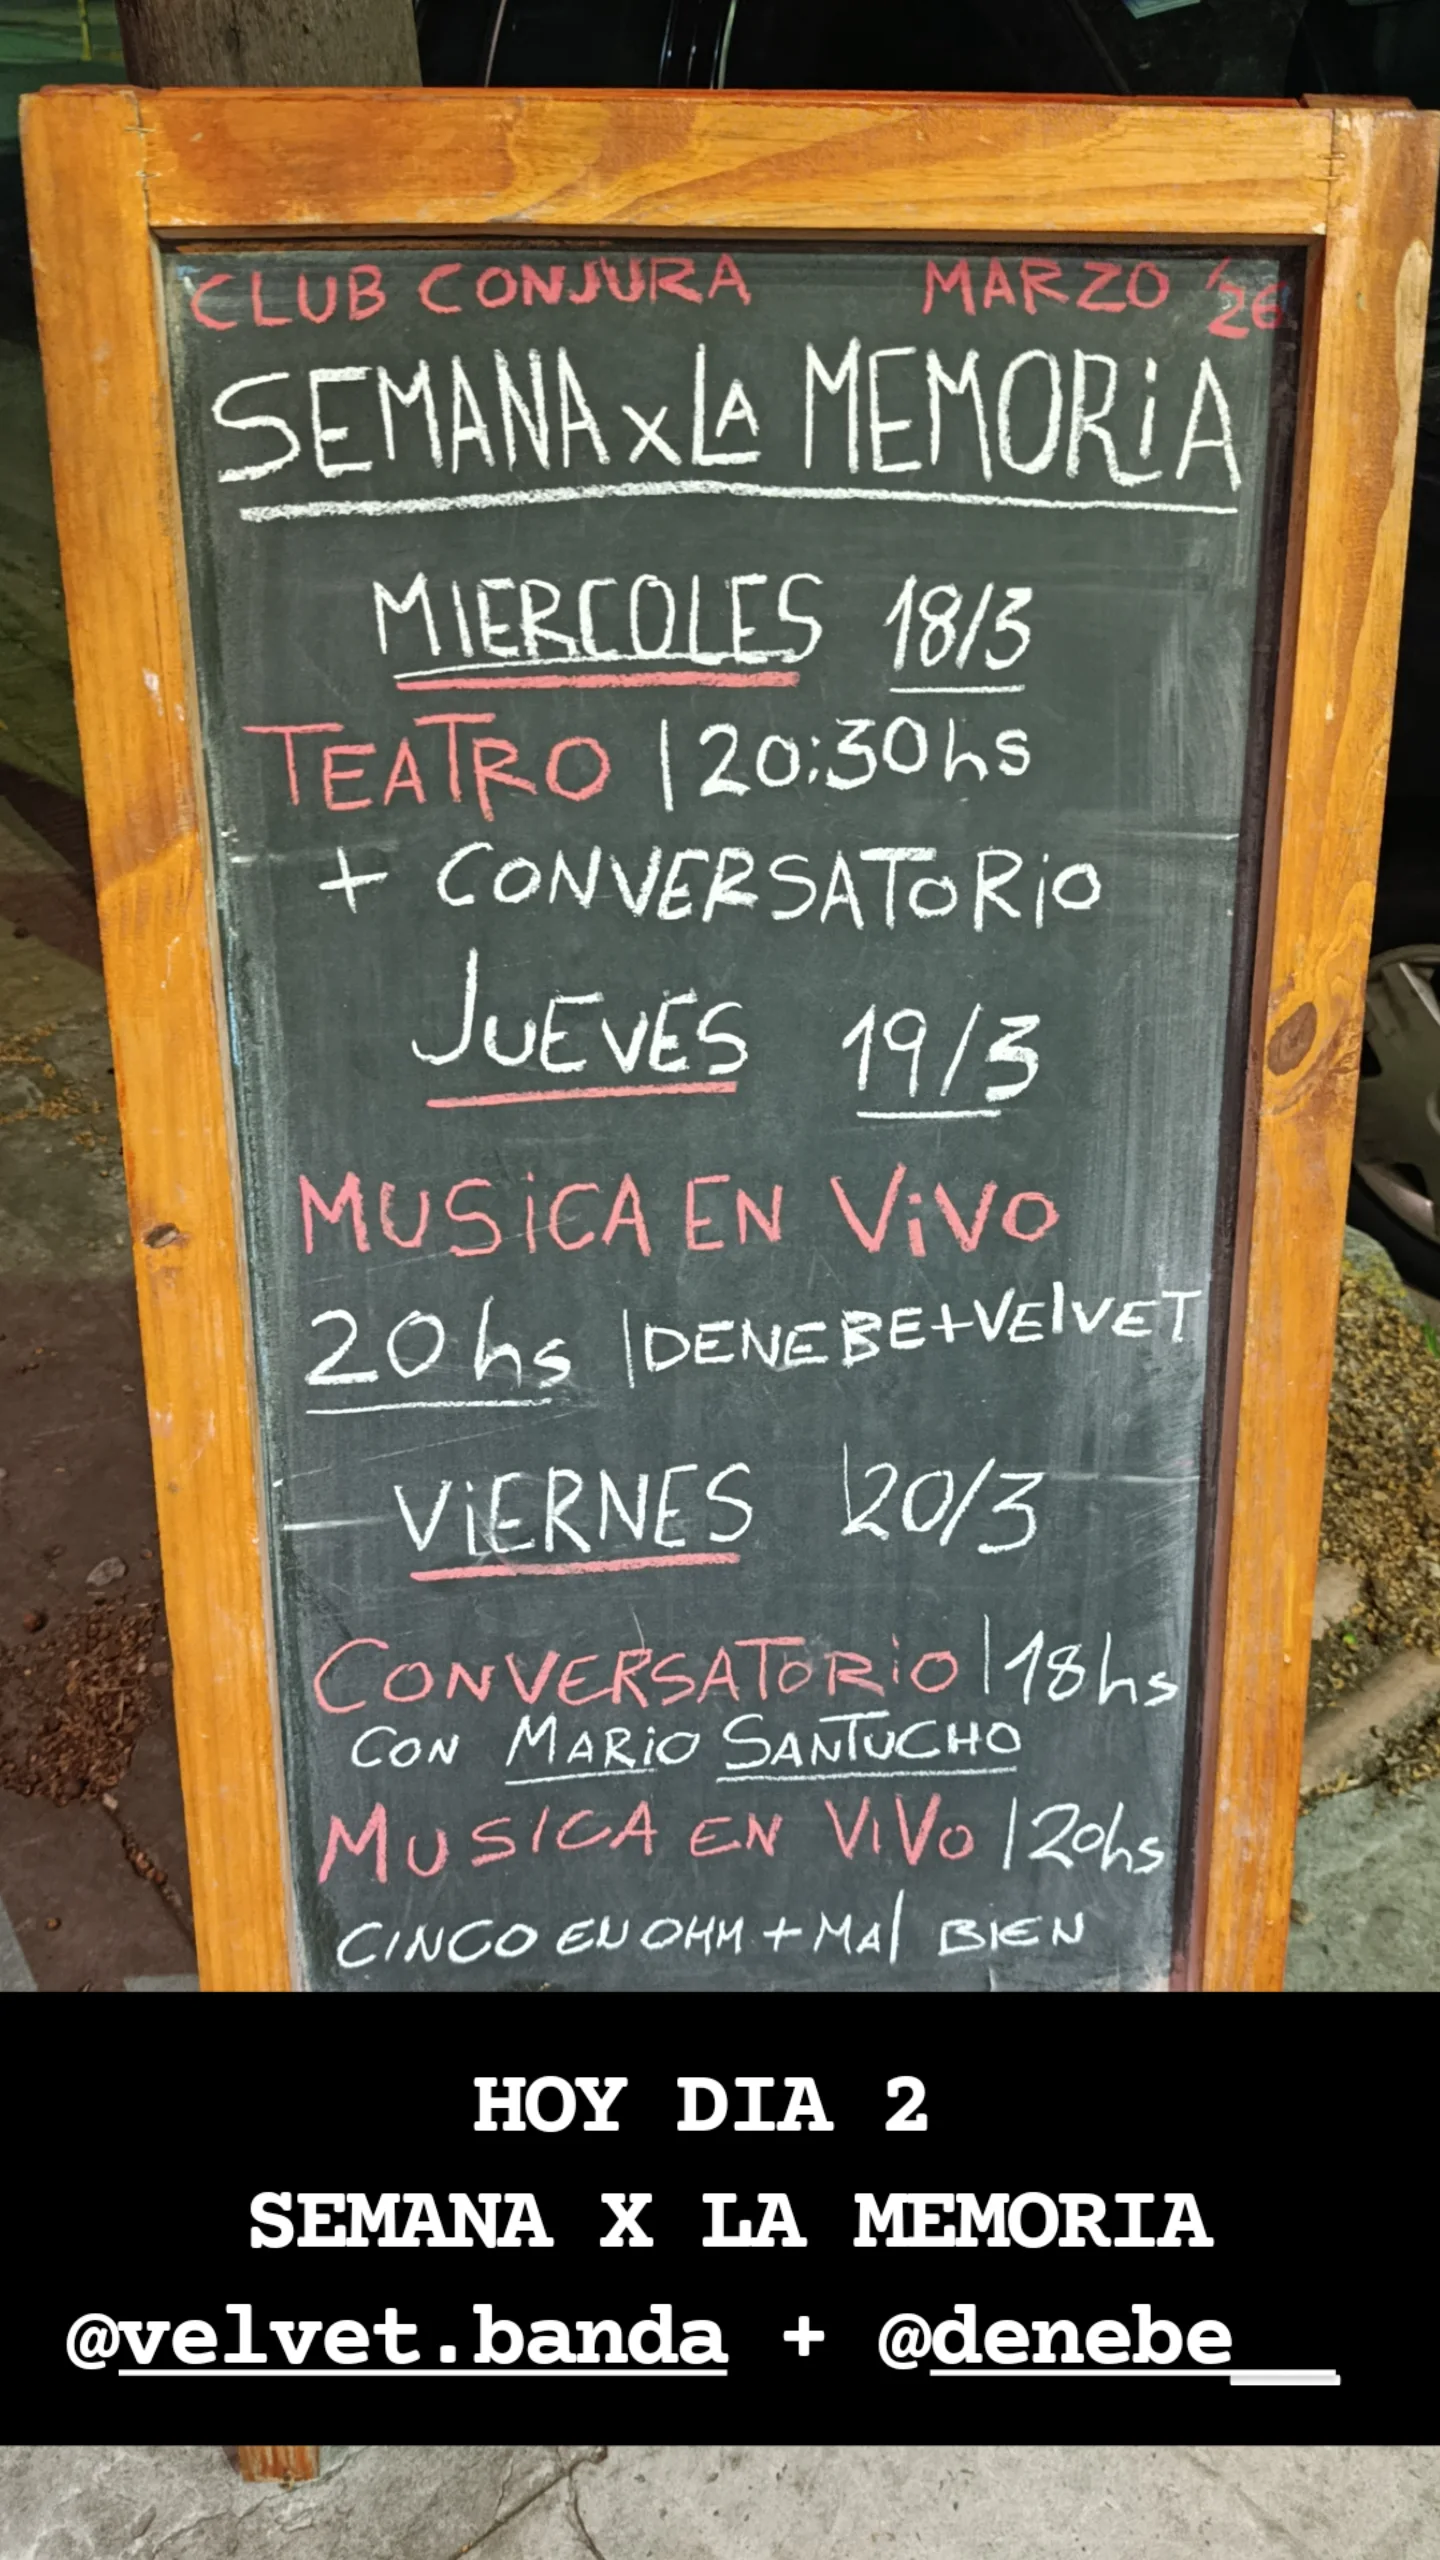 CLUB CONJURA MARZO '26
SEMANA x LA MEMORiA
MIERCOLES 18/3
TEATRO | 20:30hs
+ CONVERSATORiO
JUEVES 19/3
MUSiCA EN ViVO
20hs | DENEBE+VElVET
ViERNES 20/3
CONVERSATORiO | 18hs
CON MARiO SANTUCHO
MUSICA EN ViVo | 20hs
CINCO EN OHM + MAl BIEN
HOY DIA 2
SEMANA X LA MEMORIA
@velvet.banda + @denebe__